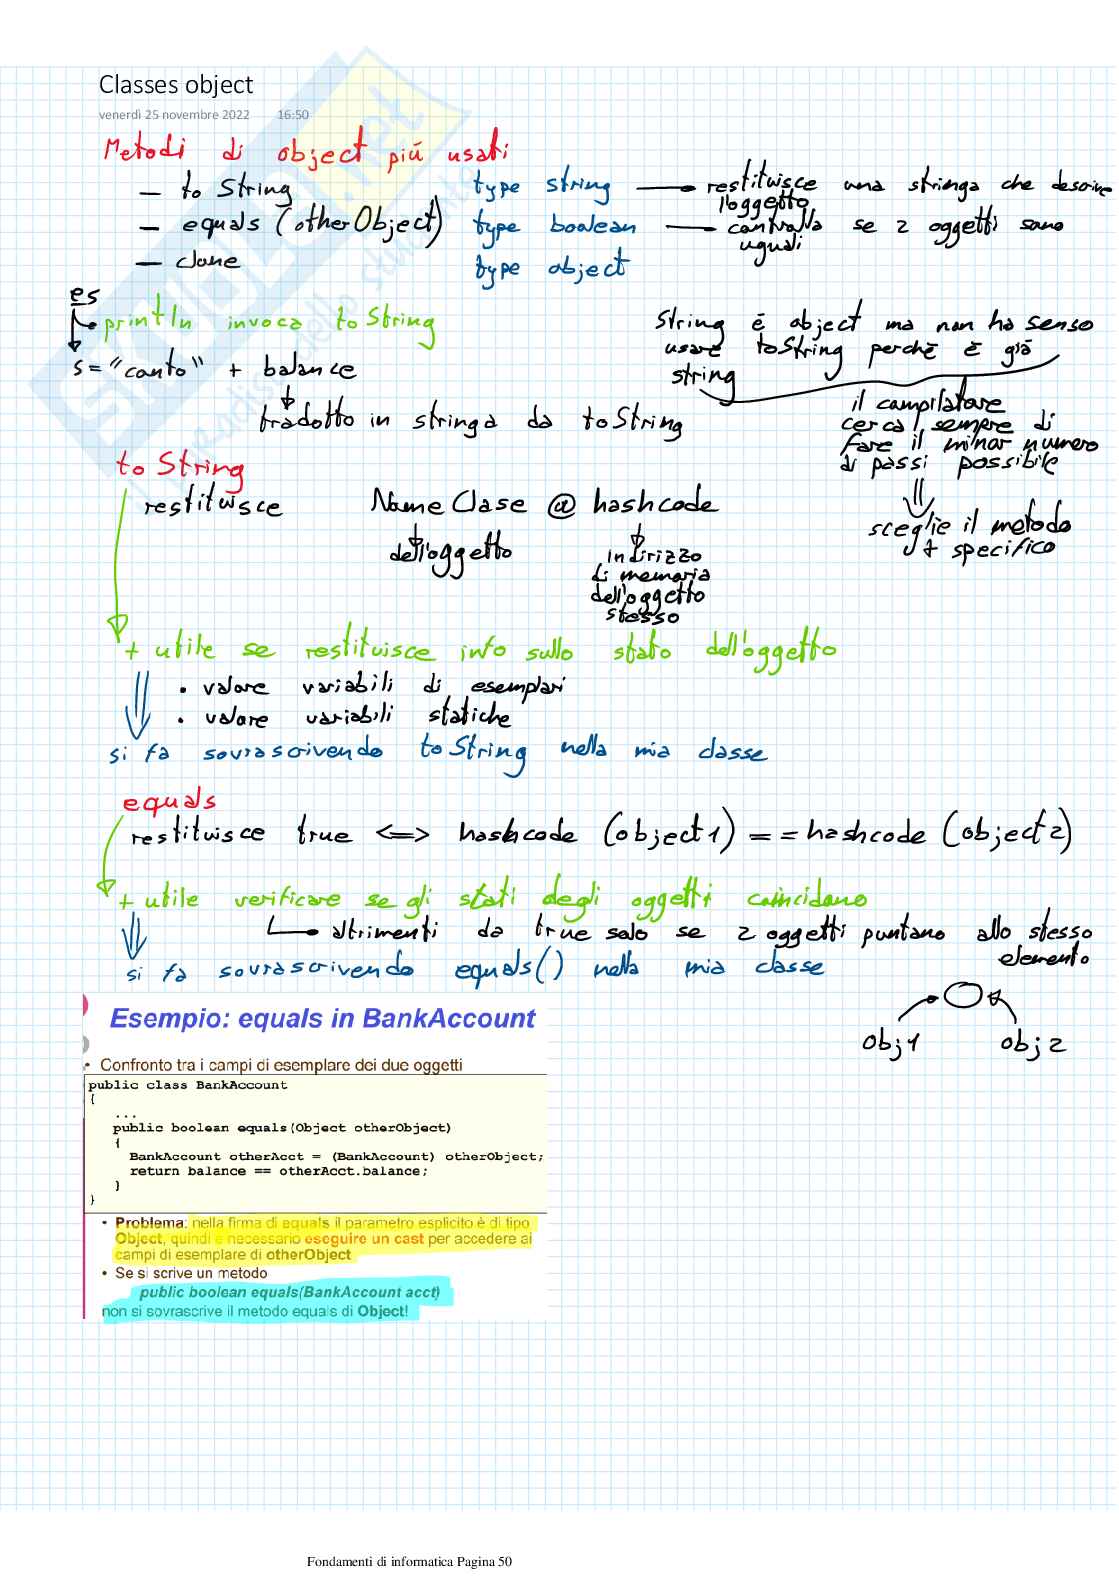 Classes object
venerdì 25 novembre 2022 16:50
Metodi di object più usati
– to String type string → restituisce una stringa che descrive l'oggetto
– equals (otherObject) type boolean → controlla se 2 oggetti sono uguali
– clone type object
es
println invoca toString
s = "conto" + balance
tradotto in stringa da toString
String è object ma non ha senso
usare toString perchè è già
string
il compilatore
cerca sempre di
fare il minor numero
di passi possibile
sceglie il metodo
+ specifico
to String
restituisce NameClase @ hashcode
dell'oggetto
indirizzo
di memoria
dell'oggetto
stesso
+ utile se restituisce info sullo stato dell'oggetto
• valore variabili di esemplari
• valore variabili statiche
si fa sovrascrivendo toString nella mia classe
equals
restituisce true <=> hashcode (object1) == hashcode (object2)
+ utile verificare se gli stati degli oggetti coincidano
altrimenti da true solo se 2 oggetti puntano allo stesso
elemento
si fa sovrascrivendo equals() nella mia classe
obj1 obj2
Esempio: equals in BankAccount
• Confronto tra i campi di esemplare dei due oggetti
public class BankAccount
{
...
public boolean equals(Object otherObject)
{
BankAccount otherAcct = (BankAccount) otherObject;
return balance == otherAcct.balance;
}
}
• Problema: nella firma di equals il parametro esplicito è di tipo
Object, quindi è necessario eseguire un cast per accedere ai
campi di esemplare di otherObject
• Se si scrive un metodo
public boolean equals(BankAccount acct)
non si sovrascrive il metodo equals di Object!
Fondamenti di informatica Pagina 50